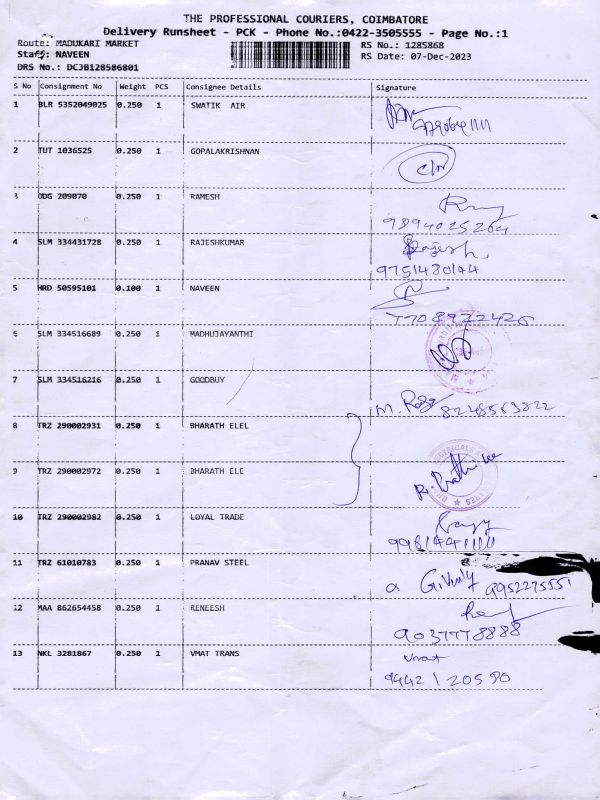 THE PROFESSIONAL COURIERS, COIMBATORE
Delivery Runsheet - PCK - Phone No.:0422-3505555 - Page No.:1
Route: MADUKARI MARKET RS No.: 1285868
Staff: NAVEEN RS Date: 07-Dec-2023
DRS No.: DCJB128586801
S No Consignment No Weight PCS Consignee Details Signature
1 BLR 5352049025 0.250 1 SWATIK AIR
2 TUT 1036525 0.250 1 GOPALAKRISHNAN
3 ODG 209070 0.250 1 RAMESH
9894025264
4 SLM 334431728 0.250 1 RAJESHKUMAR Rajesh
9751480144
5 HRD 50595101 0.100 1 NAVEEN
7708922426
6 SLM 334516689 0.250 1 MADHUJAYANTHI
7 SLM 334516216 0.250 1 GOODBUY
8 TRZ 290002931 0.250 1 BHARATH ELEL
9 TRZ 290002972 0.250 1 BHARATH ELE
10 TRZ 290002982 0.250 1 LOYAL TRADE
11 TRZ 61010783 0.250 1 PRANAV STEEL
9952275551
12 MAA 862654458 0.250 1 RENEESH
9037778888
13 NKL 3281867 0.250 1 VMAT TRANS vmat
9442120590